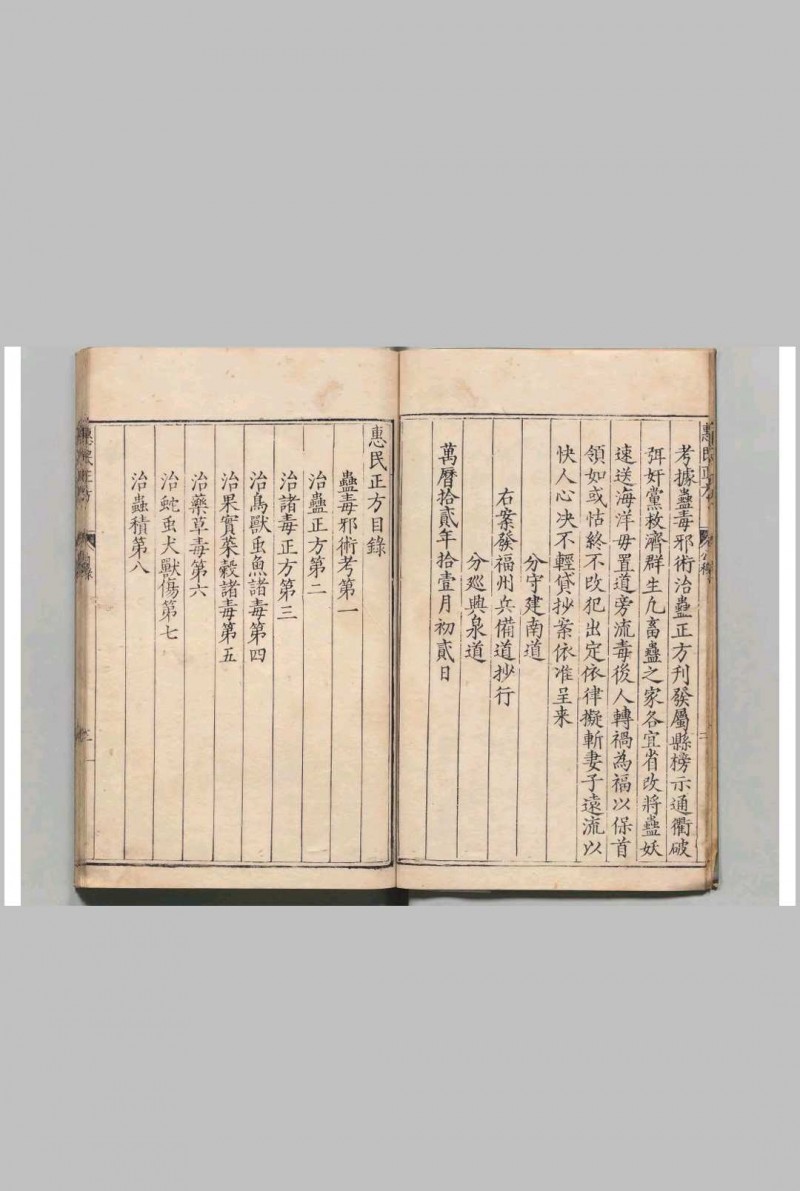 惠民正方
考據蠱毒邪術治蠱正方刊發屬縣榜示通衢破
弭奸黨救濟群生凢畜蠱之家各宜省改將蠱妖
速送海洋毋置道旁流毒後人轉禍為福以保首
領如或怙終不改犯出定依律擬斬妻子遠流以
快人心决不輕貸抄案依准呈来
分守建南道
右案發福州兵備道抄行
分廵興泉道
萬曆拾貳年拾壹月初貳日
惠民正方目錄
蠱毒邪術考第一
治蠱正方第二
治諸毒正方第三
治鳥獸虫魚諸毒第四
治果實菜穀諸毒第五
治藥草毒第六
治蛇虫犬獸傷第七
治蟲積第八
惠民正方